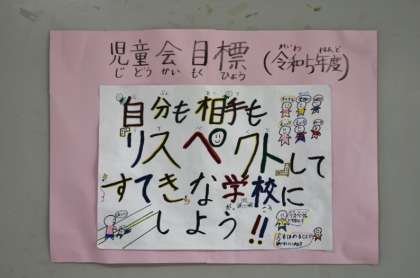 児童会目標（令和5年度）
じどうかいもくひょう れいわ ねんど
自分も相手も
リスペクトして
すてきな学校に
しよう!!